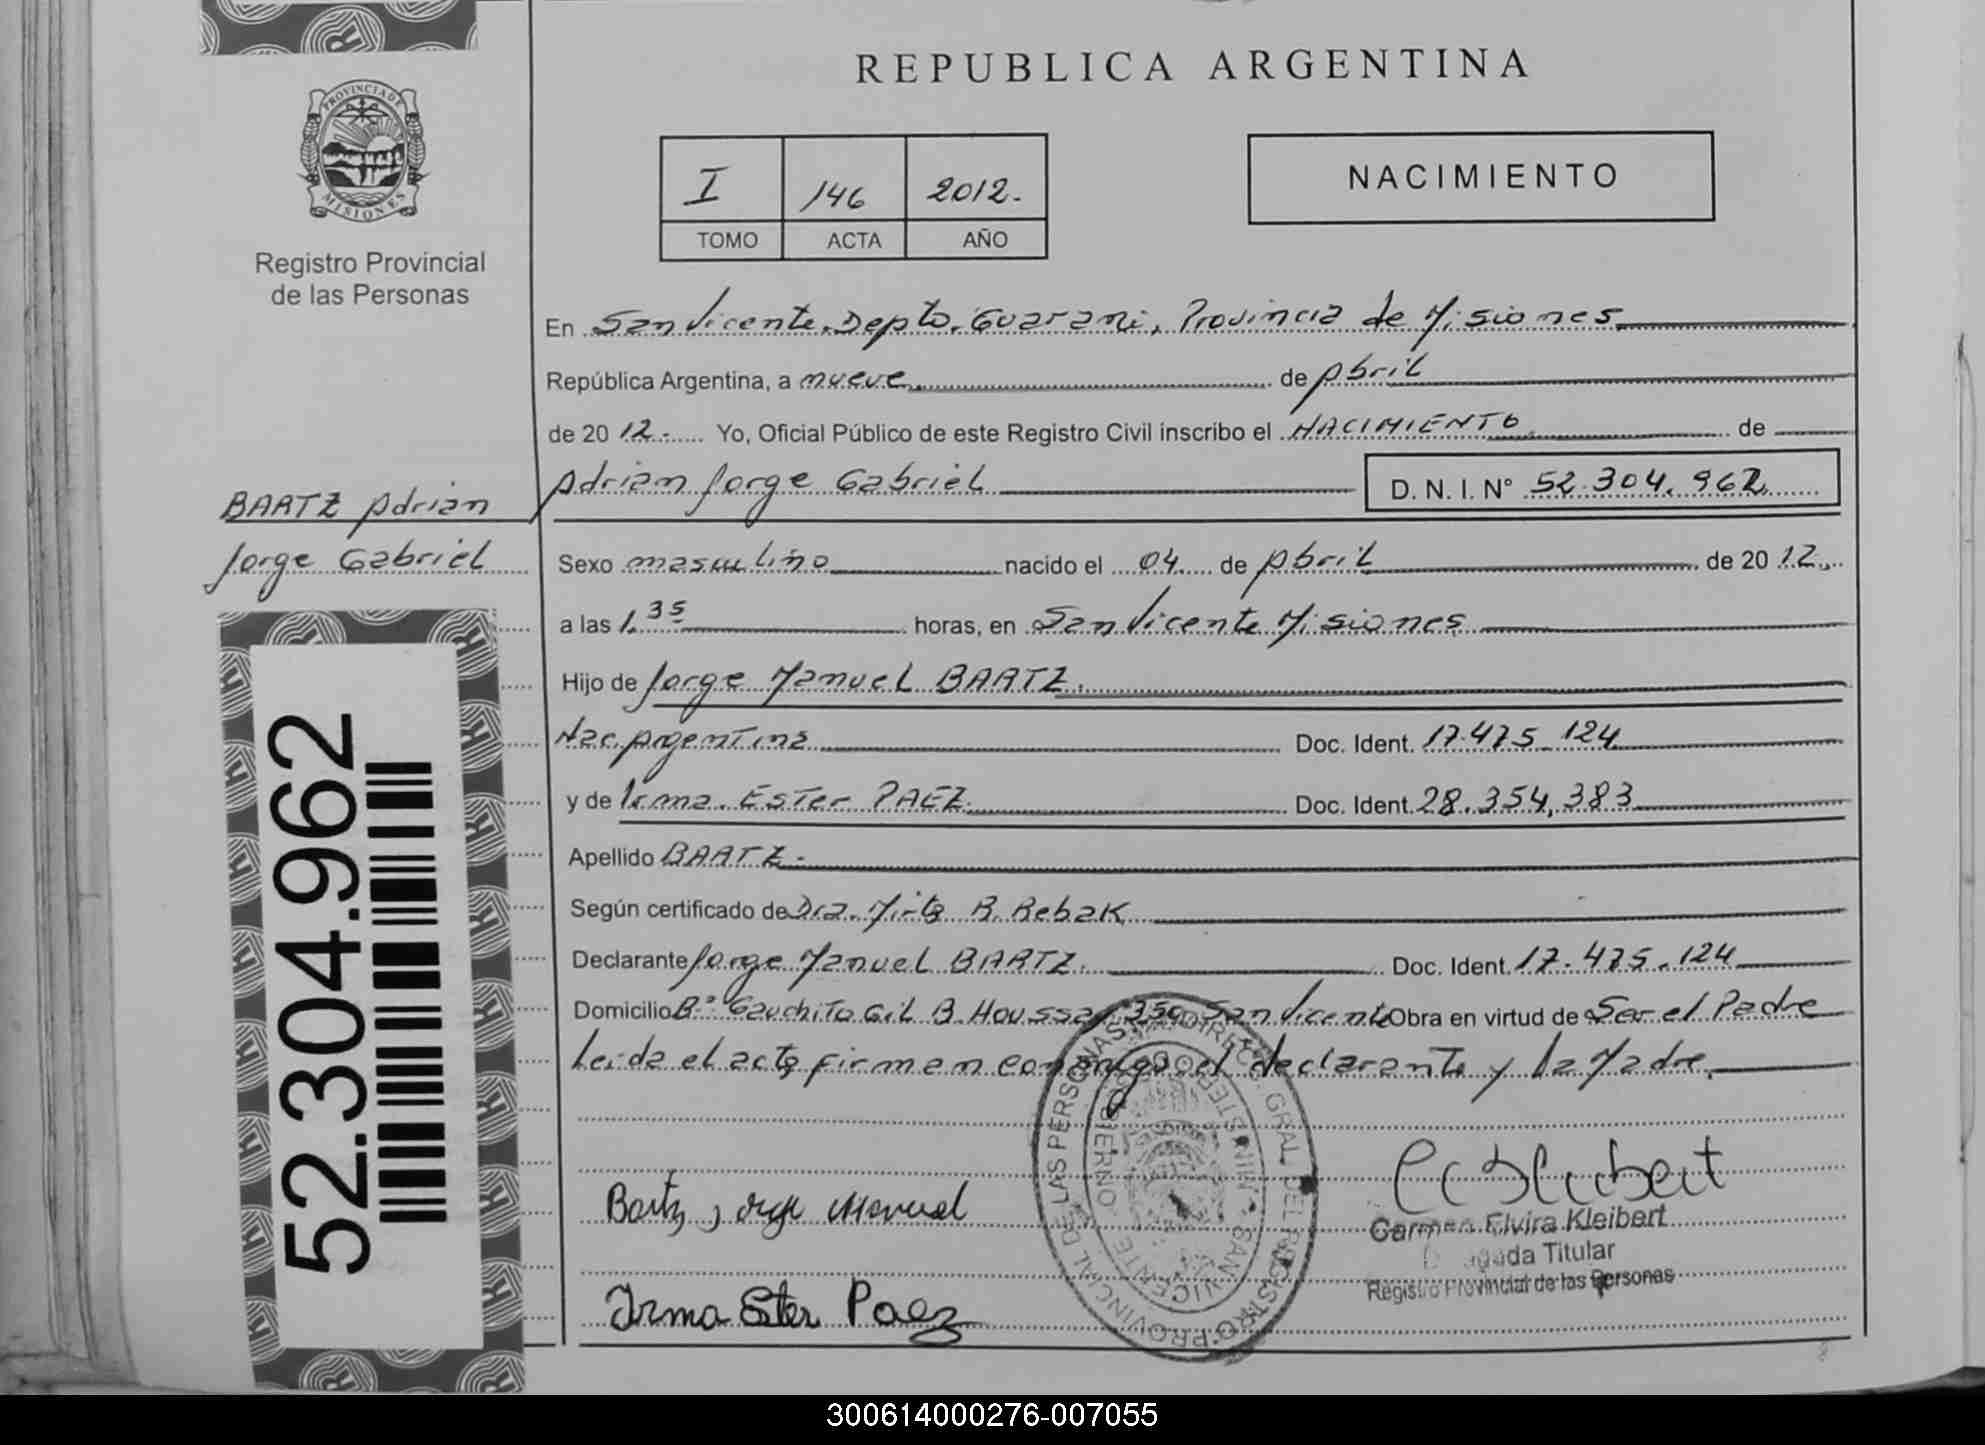 REPUBLICA ARGENTINA
PROVINCIA DE MISIONES
Registro Provincial
de las Personas
I 146 2012.
TOMO ACTA AÑO
NACIMIENTO
En San Vicente. Depto. Guarani, Provincia de Misiones
República Argentina, a nueve de Abril
de 2012.- Yo, Oficial Público de este Registro Civil inscribo el NACIMIENTO de
Adrian Jorge Gabriel D. N. I. N° 52.304.962
BARTZ Adrian
Jorge Gabriel
Sexo masculino nacido el 04 de Abril de 2012.
a las 1.35 horas, en San Vicente Misiones
Hijo de Jorge Manuel BARTZ.
Nac. Argentina Doc. Ident. 17.475.124
y de Irma Ester PAEZ. Doc. Ident. 28.354,383
Apellido BARTZ.
Según certificado de Dra. Mirta R. Rebak
Declarante Jorge Manuel BARTZ. Doc. Ident. 17.475.124
Domicilio B° Gauchito Gil B. Houssay 350 San Vicente Obra en virtud de Ser el Padre
Leida el acta firman conmigo el declarante y la Madre.
52.304.962
Bartz, Jorge Manuel
Carmen Elvira Kleibert
Titular
Registro Provincial de las Personas
Irma Ester Paez
DIREC. GRAL. DEL REGISTRO PROVINCIAL DE LAS PERSONAS
MINISTERIO GOBIERNO
SAN VICENTE
300614000276-007055